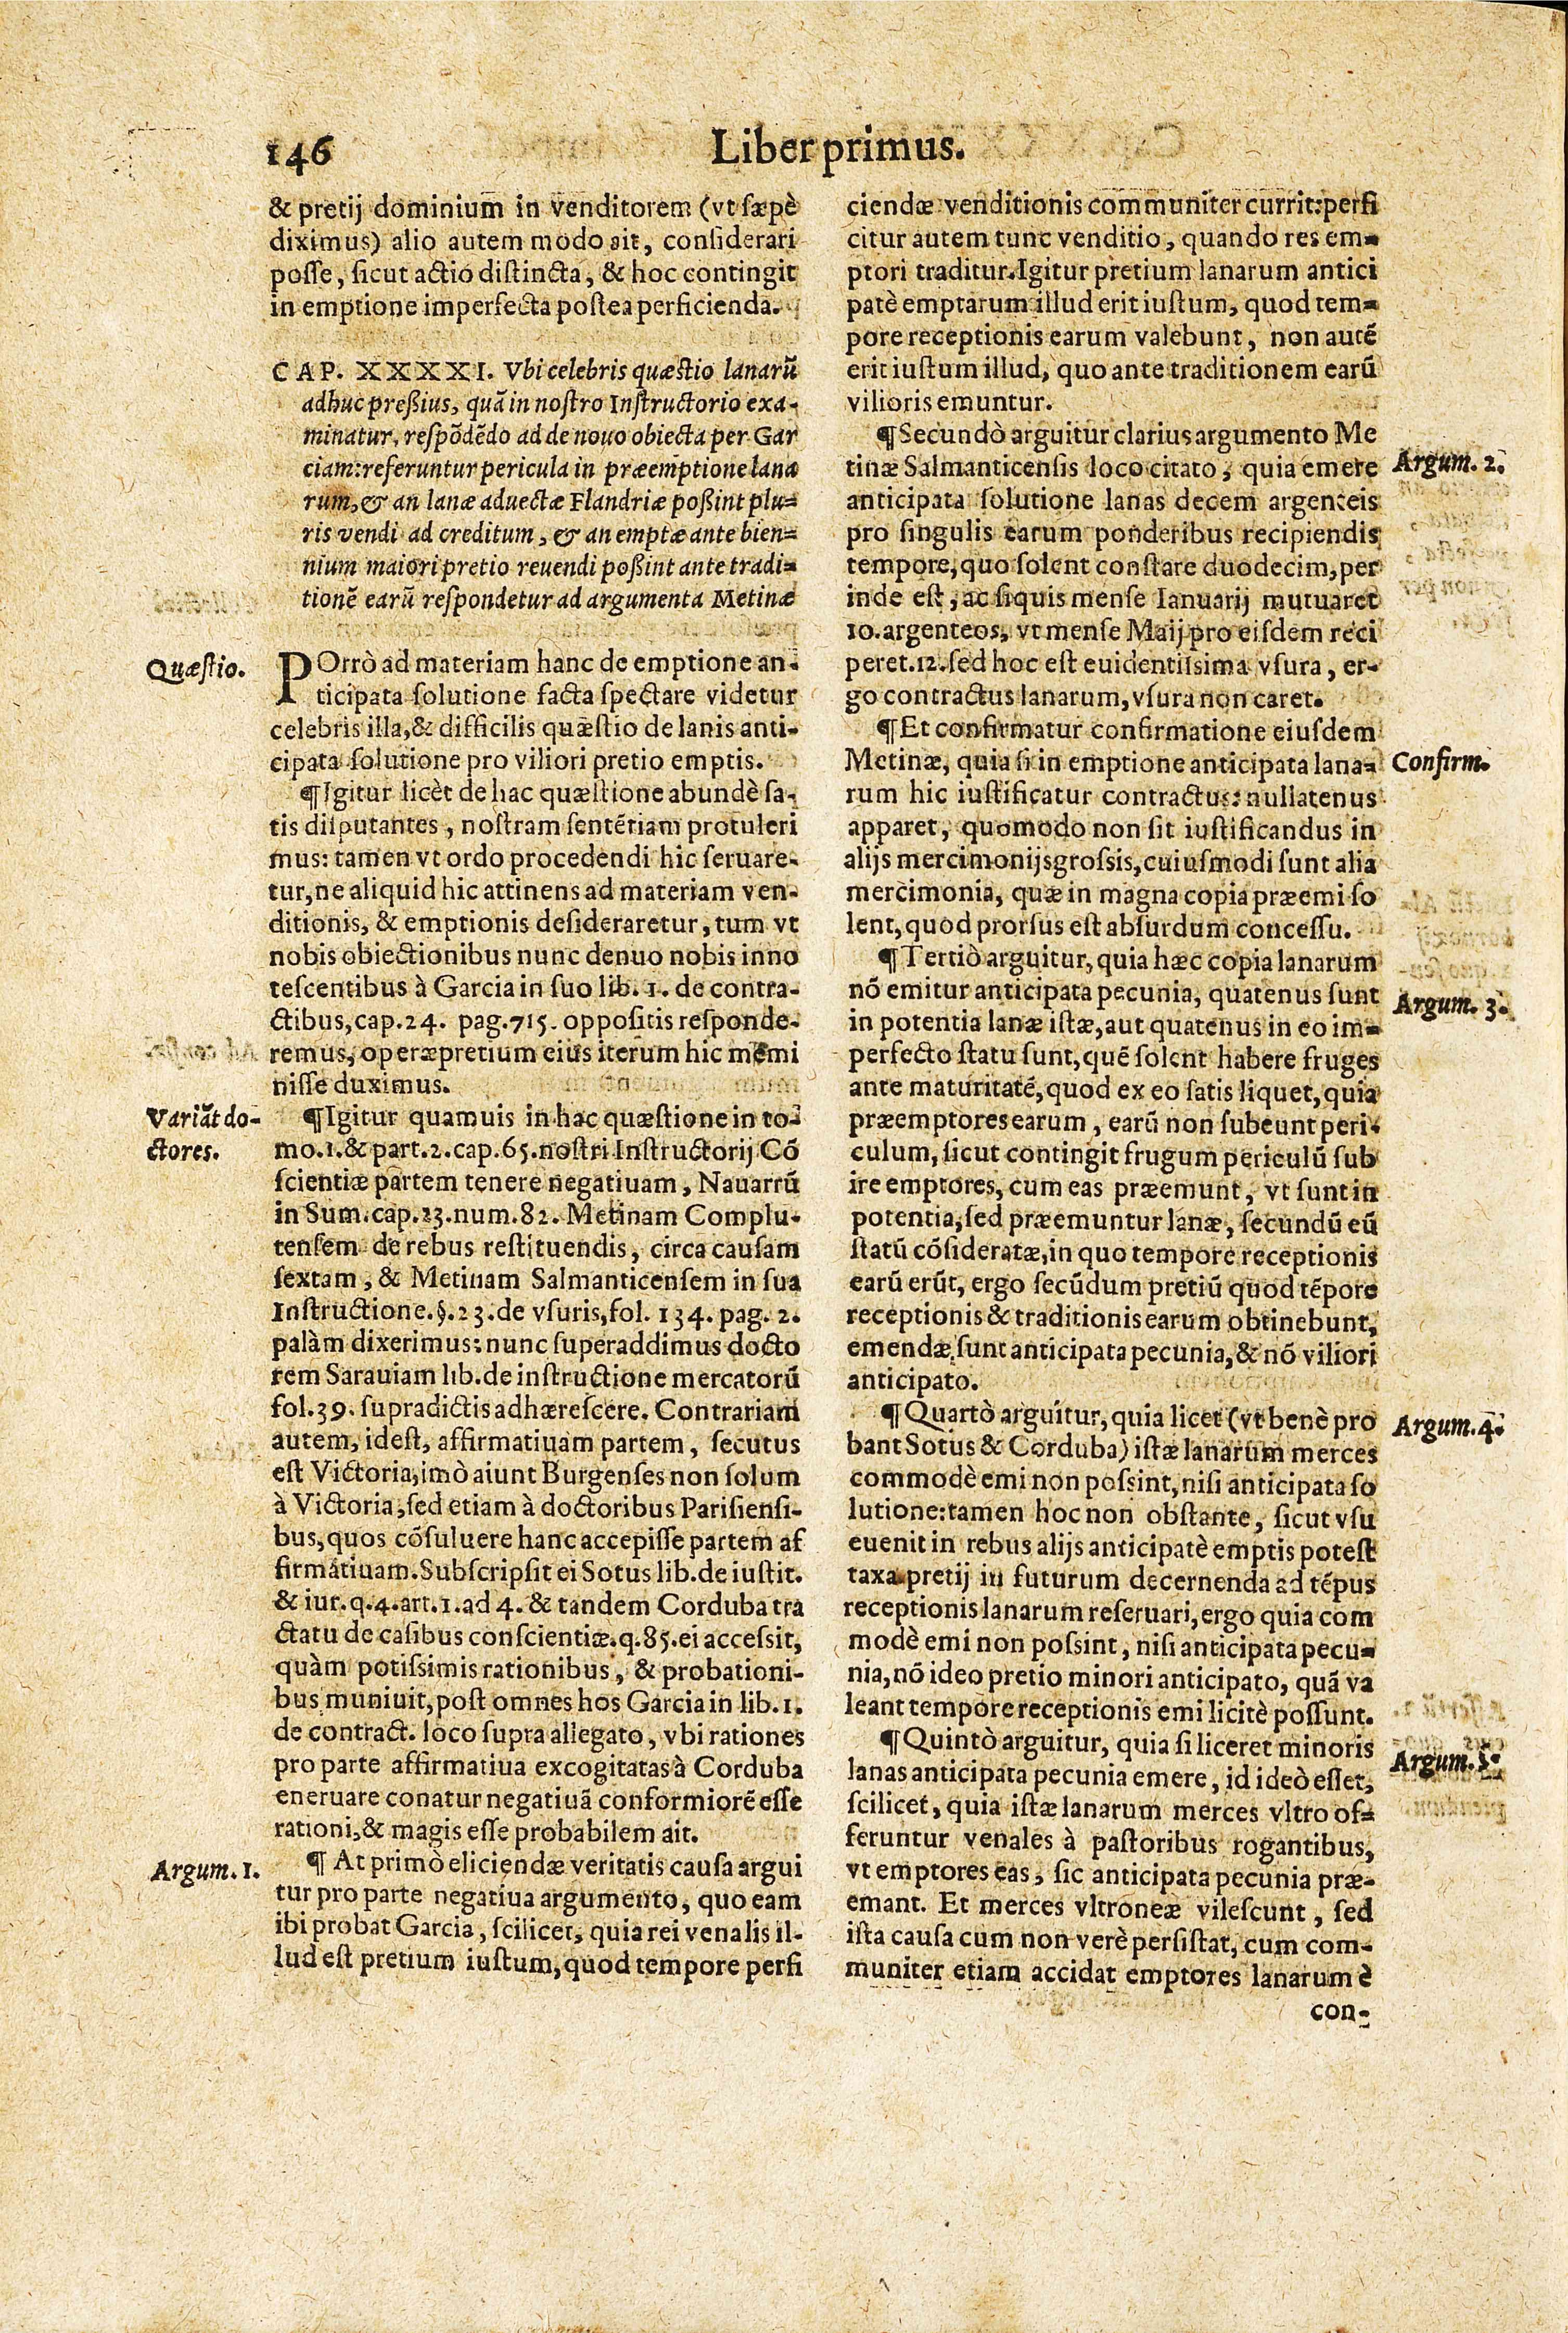 146
Liber primus.
& pretij dominium in venditorem (vt sæpè
diximus) alio autem modo ait, considerari
posse, sicut actio distincta, & hoc contingit
in emptione imperfecta postea perficienda.
CAP. XXXXI. Vbi celebris quæstio lanarũ
adhuc preßius, quã in nostro Instructorio exa-
minatur, respõdẽdo ad de nouo obiecta per Gar
ciam: referuntur pericula in præemptione lana
rum, & an lanæ aduectæ Flandriæ poßint plu-
ris vendi ad creditum, & an emptæ ante bien-
nium maiori pretio reuendi poßint ante tradi-
tionẽ earũ respondetur ad argumenta Metinæ
Quæstio.
POrrò ad materiam hanc de emptione an-
ticipata solutione facta spectare videtur
celebris illa, & difficilis quæstio de lanis anti-
cipata solutione pro viliori pretio emptis.
¶Igitur licèt de hac quæstione abundè sa-
tis disputantes, nostram sentẽtiam protuleri
mus: tamen vt ordo procedendi hic seruare-
tur, ne aliquid hic attinens ad materiam ven-
ditionis, & emptionis desideraretur, tum vt
nobis obiectionibus nunc denuo nobis inno
tescentibus à Garcia in suo lib. 1. de contra-
ctibus, cap. 24. pag. 715. oppositis responde-
remus, operæpretium eius iterum hic memi
nisse duximus.
Variãt do-
ctores.
¶Igitur quamuis in hac quæstione in to-
mo. 1. & part. 2. cap. 65. nostri Instructorij Cõ
scientiæ partem tenere negatiuam, Nauarrũ
in Sum. cap. 23. num. 82. Metinam Complu-
tensem de rebus restituendis, circa causam
sextam, & Metinam Salmanticensem in sua
Instructione. §. 23. de vsuris, fol. 134. pag. 2.
palàm dixerimus: nunc superaddimus docto
rem Sarauiam lib. de instructione mercatorũ
fol. 39. supradictis adhærescere. Contrariam
autem, idest, affirmatiuam partem, secutus
est Victoria, imò aiunt Burgenses non solum
à Victoria, sed etiam à doctoribus Parisiensi-
bus, quos cõsuluere hanc accepisse partem af
firmatiuam. Subscripsit ei Sotus lib. de iustit.
& iur. q. 4. art. 1. ad 4. & tandem Corduba tra
ctatu de casibus conscientiæ. q. 85. ei accessit,
quàm potissimis rationibus, & probationi-
bus muniuit, post omnes hos Garcia in lib. 1.
de contract. loco supra allegato, vbi rationes
pro parte affirmatiua excogitatas à Corduba
eneruare conatur negatiuã conformiorẽ esse
rationi, & magis esse probabilem ait.
Argum. 1.
¶ At primò eliciendæ veritatis causa argui
tur pro parte negatiua argumento, quo eam
ibi probat Garcia, scilicet, quia rei venalis il-
lud est pretium iustum, quod tempore perfi
ciendæ venditionis communiter currit: perfi
citur autem tunc venditio, quando res em-
ptori traditur. Igitur pretium lanarum antici
patè emptarum illud erit iustum, quod tem-
pore receptionis earum valebunt, non autẽ
erit iustum illud, quo ante traditionem earũ
vilioris emuntur.
¶Secundò arguitur clarius argumento Me
tinæ Salmanticensis loco citato, quia emere
Argum. 2.
anticipata solutione lanas decem argenteis
pro singulis earum ponderibus recipiendis
tempore, quo solent constare duodecim, per
inde est, ac siquis mense Ianuarij mutuaret
10. argenteos, vt mense Maij pro eisdem reci
peret. 12. sed hoc est euidentissima vsura, er-
go contractus lanarum, vsura non caret.
¶Et confirmatur confirmatione eiusdem
Metinæ, quia si in emptione anticipata lana-
Confirm.
rum hic iustificatur contractus: nullatenus
apparet, quomodo non sit iustificandus in
alijs mercimonijs grossis, cuiusmodi sunt alia
mercimonia, quæ in magna copia præemi so
lent, quod prorsus est absurdum concessu.
¶Tertiò arguitur, quia hæc copia lanarum
nõ emitur anticipata pecunia, quatenus sunt
Argum. 3.
in potentia lanæ istæ, aut quatenus in eo im-
perfecto statu sunt, quẽ solent habere fruges
ante maturitatẽ, quod ex eo satis liquet, quia
præemptores earum, earũ non subeunt peri-
culum, sicut contingit frugum periculũ sub
ire emptores, cum eas præemunt, vt sunt in
potentia, sed præemuntur lanæ, secundũ eũ
statũ cõsideratæ, in quo tempore receptionis
earũ erũt, ergo secũdum pretiũ quod tẽpore
receptionis & traditionis earum obtinebunt,
emendæ sunt anticipata pecunia, & nõ viliori
anticipato.
¶Quartò arguitur, quia licet (vt benè pro
Argum. 4.
bant Sotus & Corduba) istæ lanarum merces
commodè emi non possint, nisi anticipata so
lutione: tamen hoc non obstante, sicut vsu
euenit in rebus alijs anticipatè emptis potest
taxa pretij in futurum decernenda ad tẽpus
receptionis lanarum reseruari, ergo quia com
modè emi non possint, nisi anticipata pecu-
nia, nõ ideo pretio minori anticipato, quã va
leant tempore receptionis emi licitè possunt.
¶Quintò arguitur, quia si liceret minoris
Argum. 5.
lanas anticipata pecunia emere, id ideò esset,
scilicet, quia istæ lanarum merces vltro of-
feruntur venales à pastoribus rogantibus,
vt emptores eas, sic anticipata pecunia præ-
emant. Et merces vltroneæ vilescunt, sed
ista causa cum non verè persistat, cum com-
muniter etiam accidat emptores lanarum è
con-